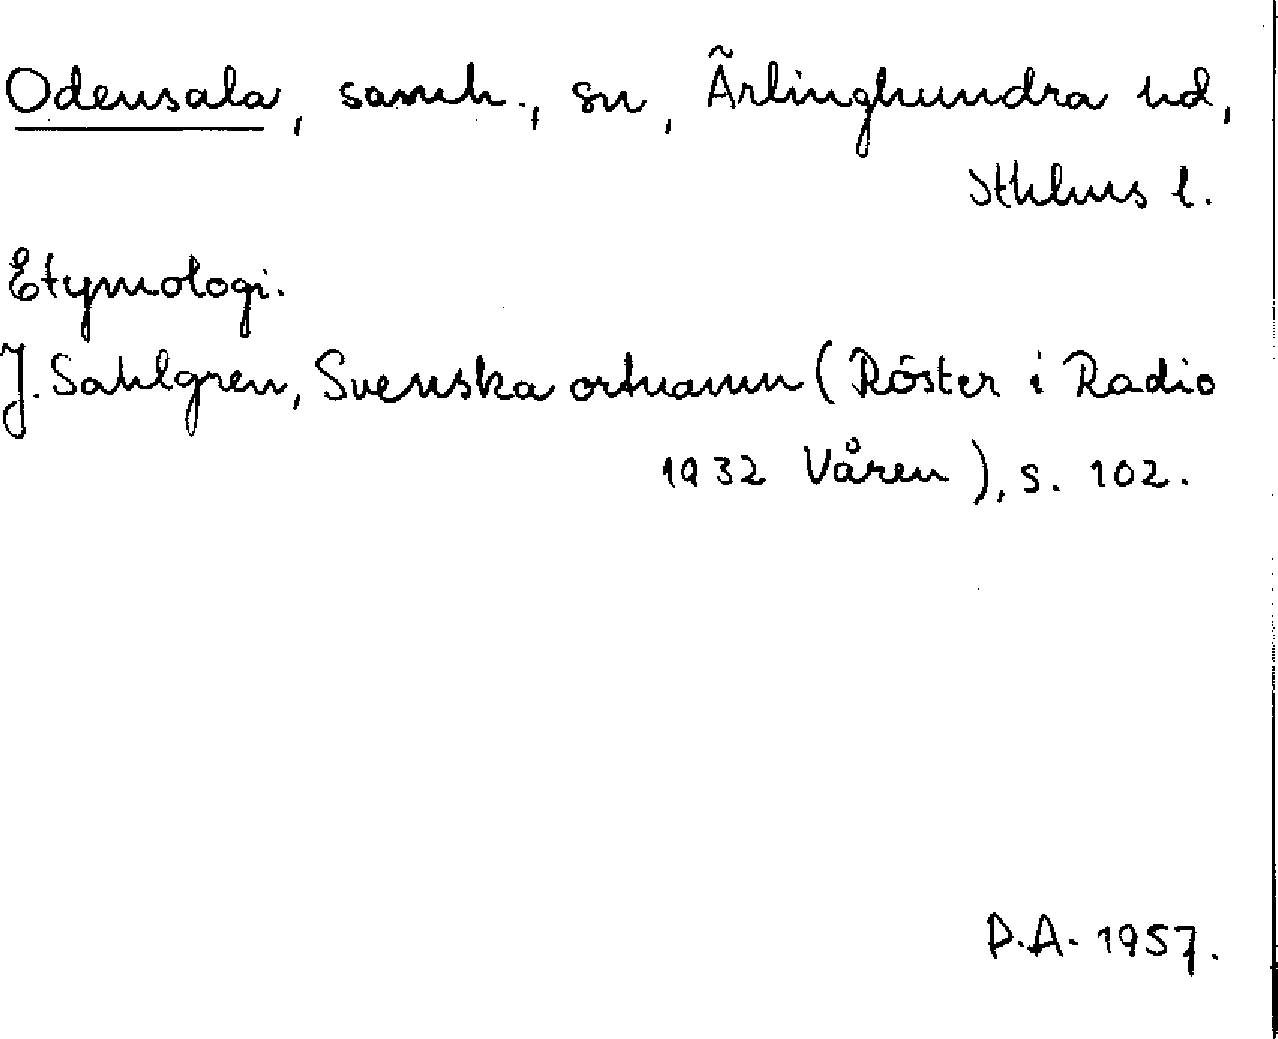 Odensala, samh., sn, Ärlinghundra hd,
Sthlms l.
Etymologi.
J. Sahlgren, Svenska ortnamn (Röster i Radio
1932 Våren), s. 102.
P.A. 1957.